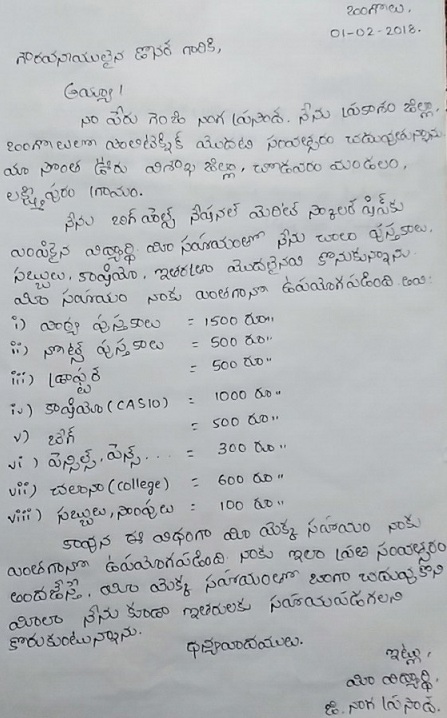 ఒంగోలు.
01-02-2018.
గౌరవనీయులైన డోనర్ గారికి,
అయ్యా!
నా పేరు గెంజి నాగ ప్రసాద్. నేను ప్రకాశం జిల్లా,
ఒంగోలులో పాలిటెక్నిక్ మొదటి సంవత్సరం చదువుతున్నాను.
మా సొంత ఊరు విశాఖ జిల్లా, చోడవరం మండలం,
లక్ష్మీపురం గ్రామం.
నేను బిగ్ హెల్ప్ నేషనల్ మెరిట్ స్కాలర్ షిప్‌కు
ఎంపికైన విద్యార్థి. మీ సహాయంతో నేను చాలా పుస్తకాలు,
సబ్బులు, కాప్రియో, ఇతరత్రా మొదలైనవి కొనుకున్నాను.
మీ సహాయం నాకు ఎంతగానో ఉపయోగపడింది. అవి
i) పాఠ్య పుస్తకాలు = 1500 రూ"
ii) నోట్స్ పుస్తకాలు = 500 రూ"
iii) డ్రాఫ్టర్ = 500 రూ"
iv) కాప్రియో (CASIO) = 1000 రూ"
v) బ్యాగ్ = 500 రూ"
vi) పెన్సిల్స్, పెన్స్... = 300 రూ"
vii) చలానా (college) = 600 రూ"
viii) సబ్బులు, సాంపులు = 100 రూ"
కావున ఈ విధంగా మీ యొక్క సహాయం నాకు
ఎంతగానో ఉపయోగపడింది. నాకు ఇలా ప్రతి సంవత్సరం
అందజేస్తే, మీ యొక్క సహాయంతో బాగా చదువుకొని
మీలా నేను కూడా ఇతరులకు సహాయపడగలని
కోరుకుంటున్నాను.
ధన్యవాదములు.
ఇట్లు,
మీ విద్యార్థి,
జి. నాగ ప్రసాద్.